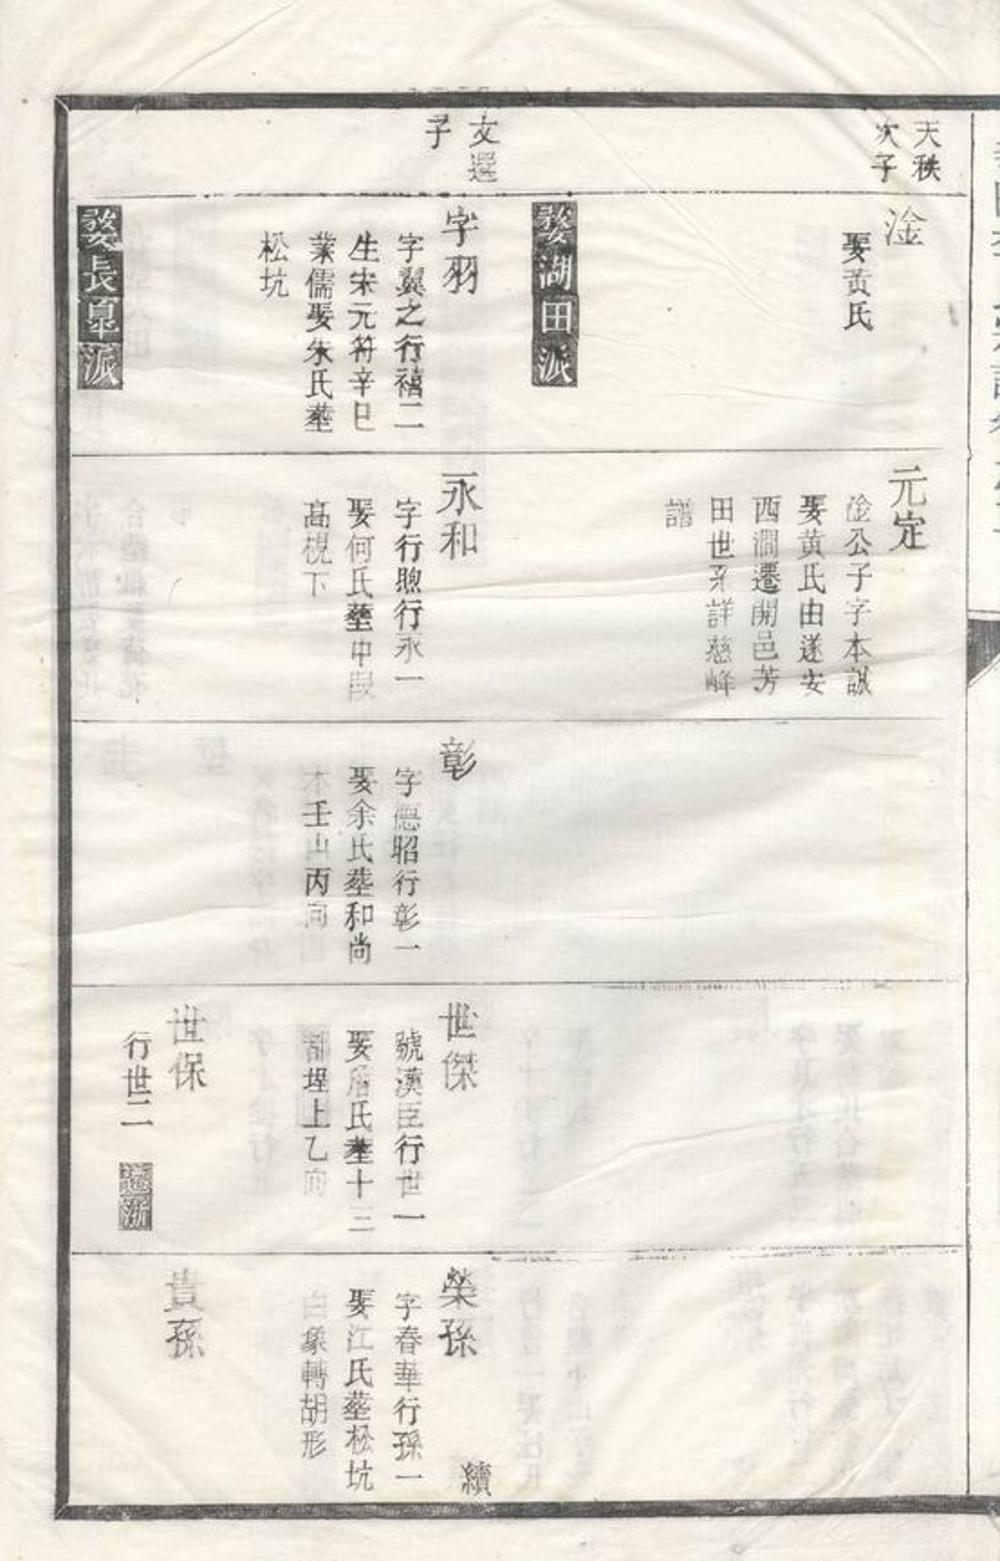 天秩
次子
淦
娶黃氏
元定
淦公子字本謀
娶黃氏由遂安
西澗遷開邑芳
田世系詳慈峰
譜
婺湖田派
文選
子
字羽
字翼之行禧二
生宋元符辛巳
業儒娶朱氏塟
松坑
永和
字行煦行永一
娶何氏塟中段
高梘下
彰
字德昭行彰一
娶余氏塟和尚
木壬山丙向
世傑
號漢臣行世一
娶詹氏塟十三
都埕上乙向
榮孫
字春華行孫一
娶江氏塟松坑
白象轉胡形
續
世保
行世二
遷浙
貴孫
婺長皐派